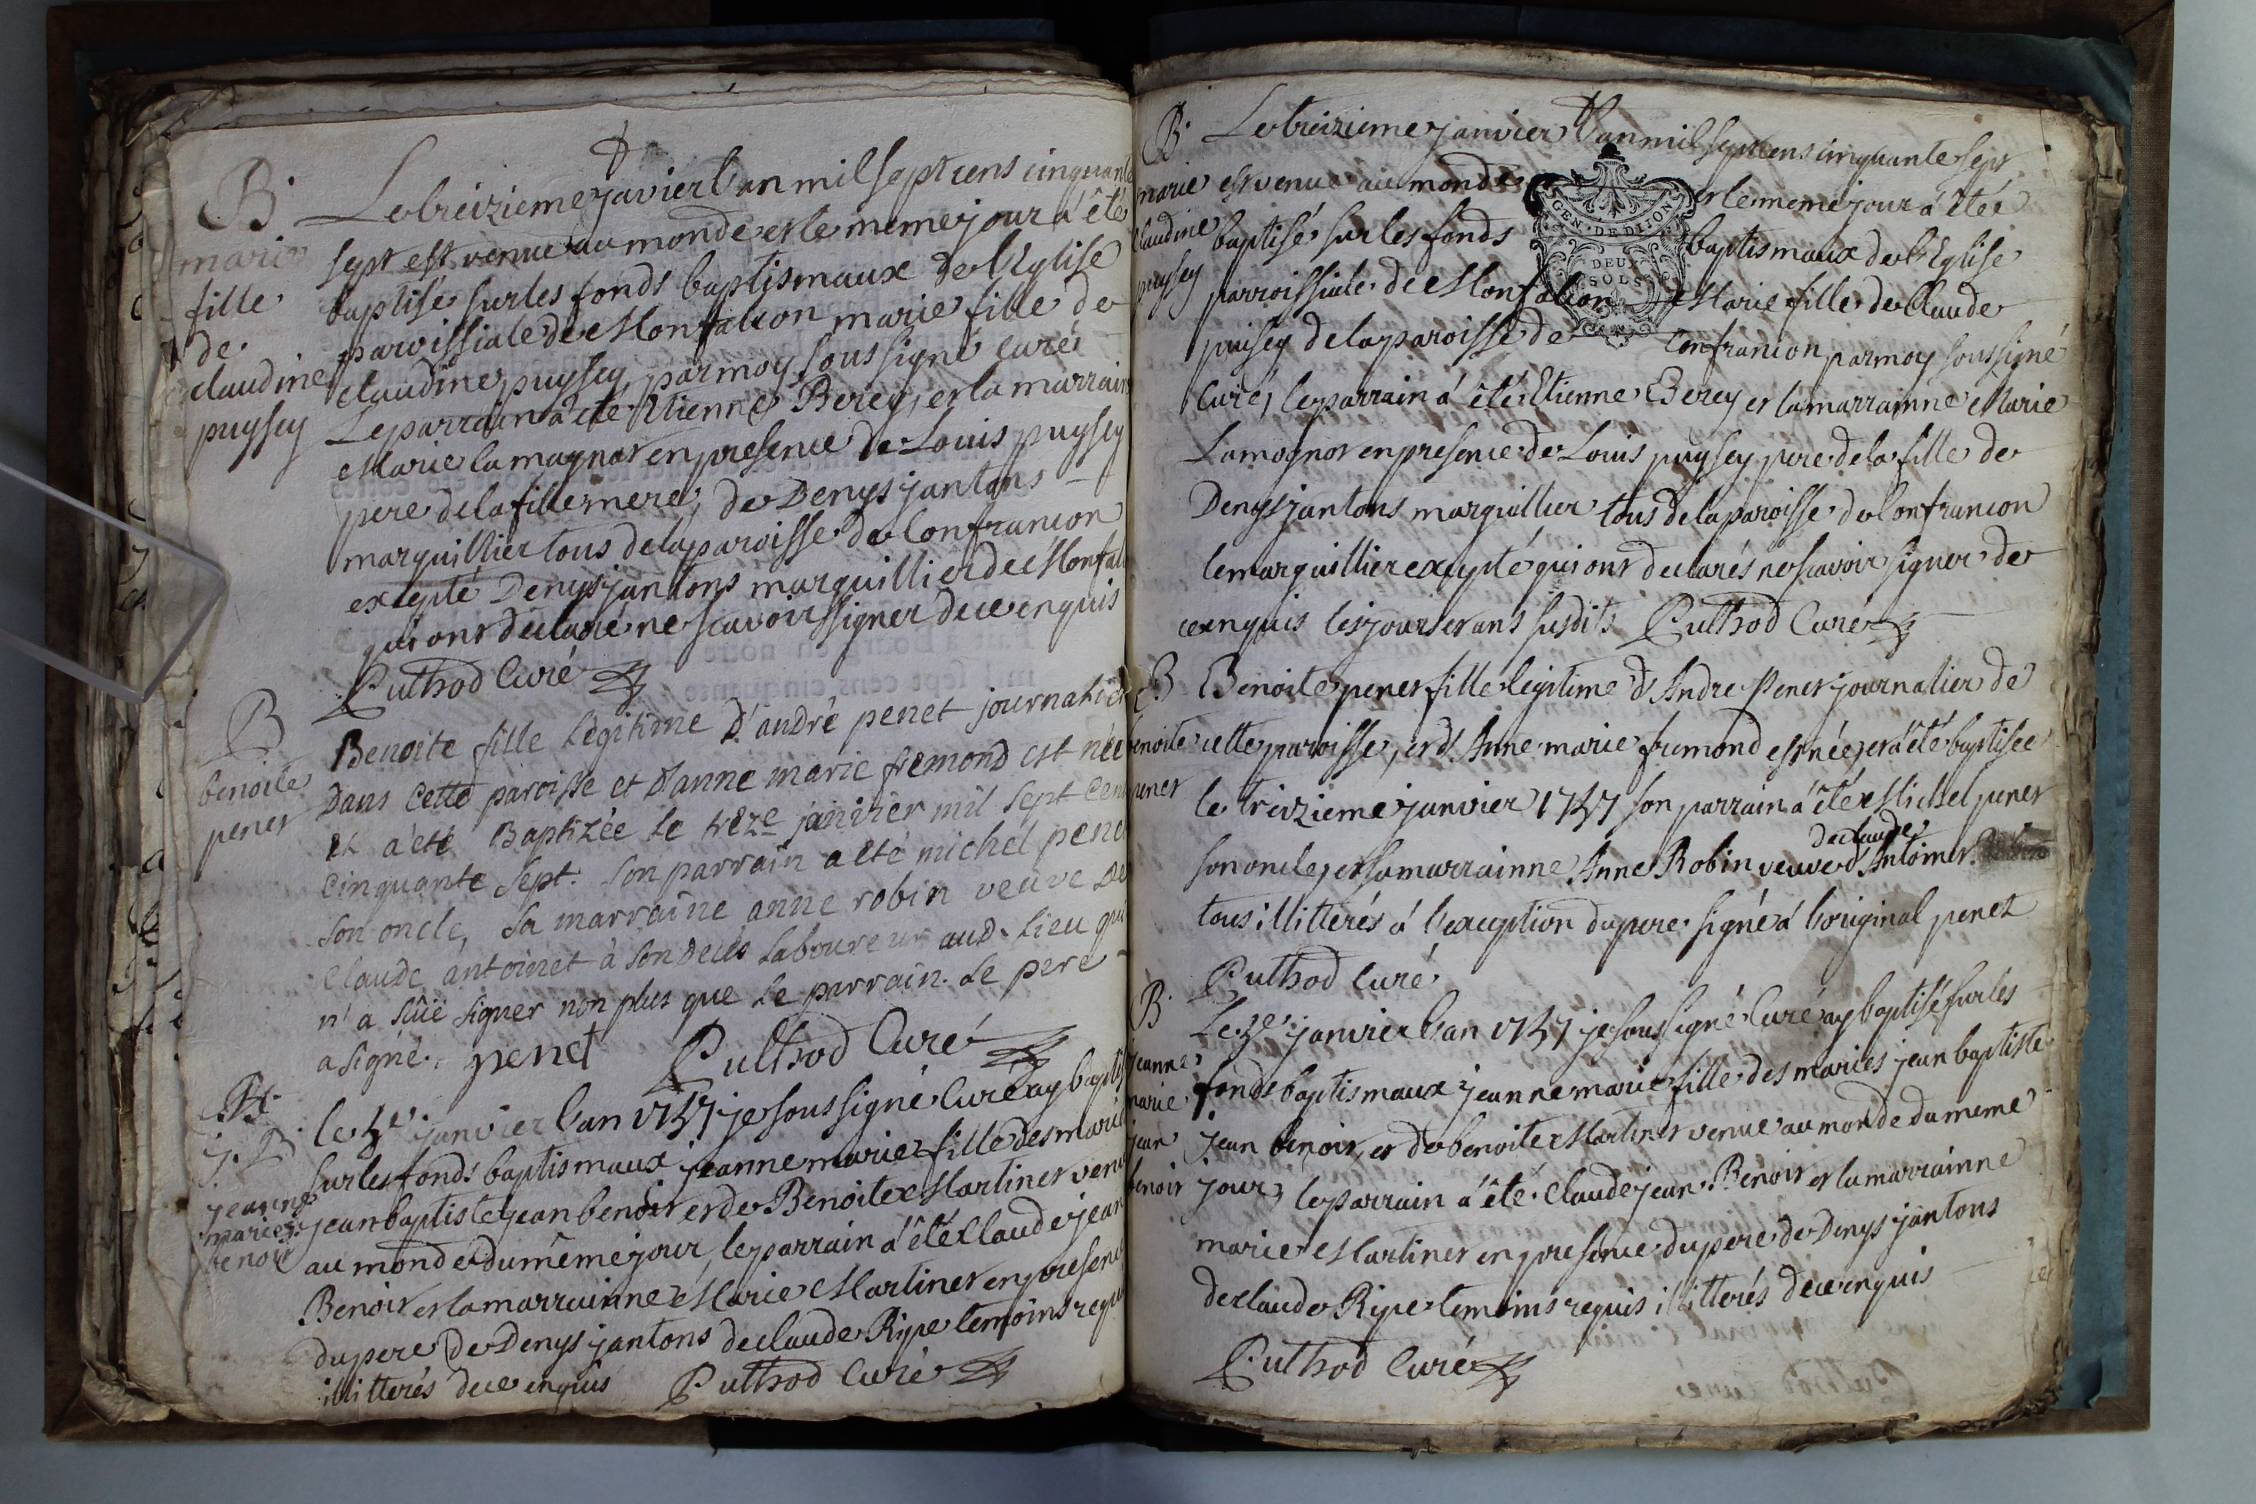 B.
marie
fille
de
claudine
puysey
Le treizieme javier l'an mil sept cens cinquante
sept est venue au monde et le meme jour a été
baptisé sur les fonds baptismaux de l'Eglise
paroissiale de Monfalcon marie fille de
claudine puysey, parmoy soussigné curé
Le parrain a été Etienne Berey, et la marraine
Marie lamagnot en presence de Louis puysey
pere de la fille mere, de Denys jantons
marguillier tous de la paroisse de Confrancon
excepté Denys jantons marguillier de Monfal
qui ont declaré ne scavoir signer de ce enquis
Puthod Curé
B
benoite
penet
Benoite fille Légitime D'andré penet journalier
Dans Cette paroisse et D'anne marie fremond est née
et a été Baptizée Le treze janvier mil sept Cent
Cinquante Sept. Son parrain a été michel penet
Son oncle, Sa marraine anne robin veuve De
Claude antoinet à Son Decès Laboureur aud. Lieu qui
n'a Sûë Signer non plus que Le parrain. Le pere
a signé. penet Puthod Curé
j. B.
jeanne
marie j.
benoit
le 13e janvier l'an 1757 je soussigné Curé ay baptisé
sur les fonds baptismaux jeanne marie fille des mariés
jean baptiste jean benoit et de Benoite Martinet venue
au monde du même jour, le parrain a été Claude jean
Benoit et la marrainne Marie Martinet en presence
du pere de Denys jantons de claude Ripe temoins requis
illitterés de ce enquis Puthod Curé
B.
marie
claudine
puysey
Le treizieme janvier l'an mil sept cens cinquante sept
est venue au monde et le meme jour a été
baptisé sur les fonds baptismaux de l'Eglise
parroissiale de Monfalcon Marie fille de Claude
puisey de la paroisse de Confrancon parmoy soussigné
Curé, le parrain a été Etienne Berey et la marrainne Marie
Lamagnot en presence de Louis puysey pere de la fille de
Denys jantons marguillier tous de la paroisse de Confrancon
le marguillier excepté qui ont declarés ne scavoir signer de
ce enquis les jour et ans susdits Puthod Curé
GEN. DE DIJON
DEUX
SOLS
B
benoite
penet
Benoite penet fille légitime d'Andre Penet journalier de
cette paroisse, et d'Anne marie fremond est née, et a été baptisée
le treizieme janvier 1757 son parrain a été Michel penet
son oncle, et sa marrainne Anne Robin veuve de claude Antoinet
tous illitterés á l'exception du pere signé á l'original penet
Puthod Curé
B.
jeanne
marie
jean
benoit
Le 13e janvier l'an 1757 je soussigné Curé ay baptisé sur les
fonds baptismaux jeanne marie fille des mariés jean baptiste
jean benoit, et de benoite Martinet venue au monde du meme
jour, le parrain a été Claude jean Benoit et la marrainne
marie Martinet en presence du pere de Denys jantons
de claude Ripe temoins requis illitterés de ce enquis
Puthod Curé